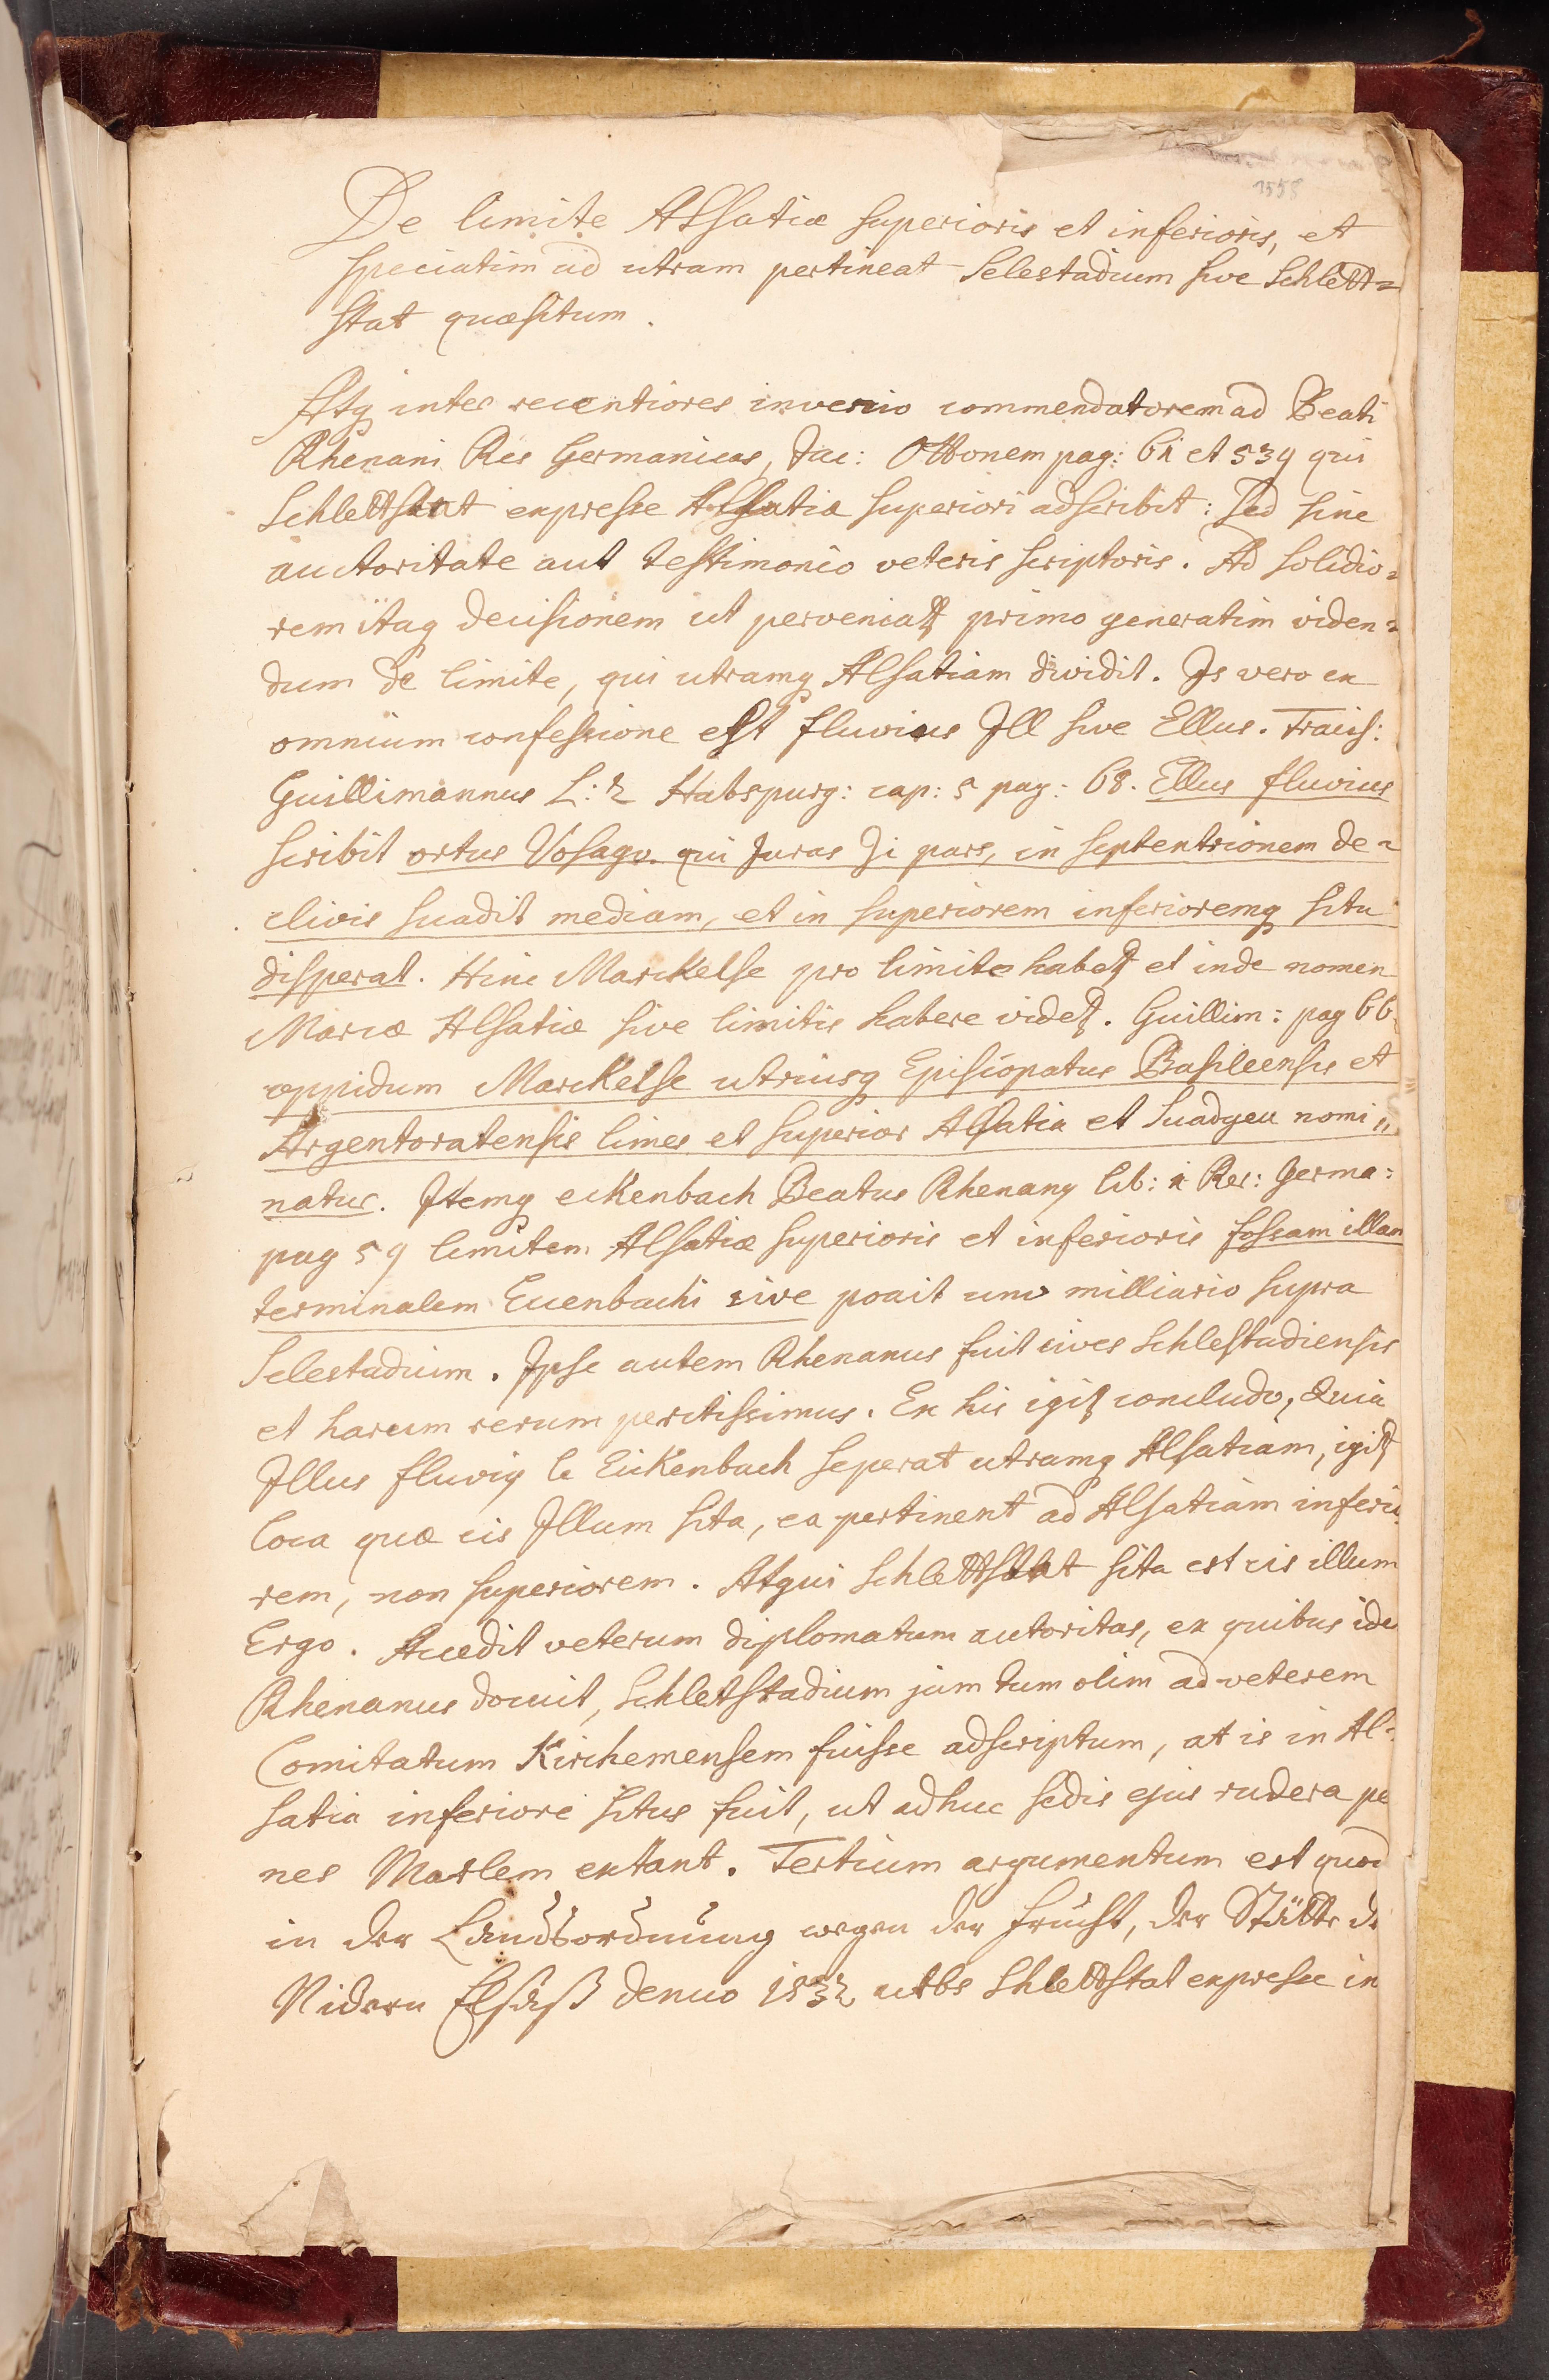 1558
De limite Alsatiæ superioris et inferioris, et
speciatim ad utram pertineat Selestadium sive Schlett=
stat quæsitum.
Atq inter recentiores invenio commendatorem ad Beati
Rhenani Res Germanicas, Jac: Ottonem pag: 61 et 539 qui
Schlettstat expresse Alsatiæ superiori adscribit: Sed sine
auctoritate aut testimonio veteris scriptoris. Ad solidio=
rem itaq decisionem ut perveniatʒ primo generatim viden=
dum de limite, qui utramq Alsatiam dividit. Is vero ex
omnium confessione est fluvius Ill sive Ellus. Francis:
Guillimannus L: 2 Habspurg: cap: 5 pag: 68. Ellus fluvius
scribit ortus Vosago. qui Juras Ji pars, in septentrionem de=
clivis suadit mediam, et in superiorem inferioremq situ
disperat. Hinc Marckelse pro limite habetʒ et inde nomen
Marcæ Alsatiæ sive limitis habere videtʒ. Guillim: pag 66
oppidum Marckelse utriusq Episcopatus Basileensis et
Argentoratensis limes et superior Alsatia et Suadgeu nomi=
natur. Itemq eckenbach Beatus Rhenanq lib: 1 Rer: Germa:
pag 59 limitem Alsatiæ superioris et inferioris fossam illam
terminalem Eccenbachi sive ponit uno milliario supra
Selestadium. Ipse autem Rhenanus fuit cives Schlestadiensis
et harum rerum peritissimus. Ex his igitʒ concludo, Quia
Illus fluviq le Eickenbach seperat utramq Alsatiam, igitʒ
loca quæ cis Illum sita, ea pertinent ad Alsatiam inferio
rem, non superiorem. Atqui Schlettstat sita est cis illum
Ergo. Accedit veterum diplomatum autoritas, ex quibus ide
Rhenanus docuit, Schletstadium jam tum olim ad veterem
Comitatum Kirchemensem fuisse adscriptum, at is in Al=
satia inferiore situs fuit, ut adhuc sedis ejus rudera pe
nes Marlem extant. Tertium argumentum est quod
in der Landtsordnung wegen der frücht, der Stätte de
Nidern Elsäß denuo 1532 urbs Schlettstat expresse in